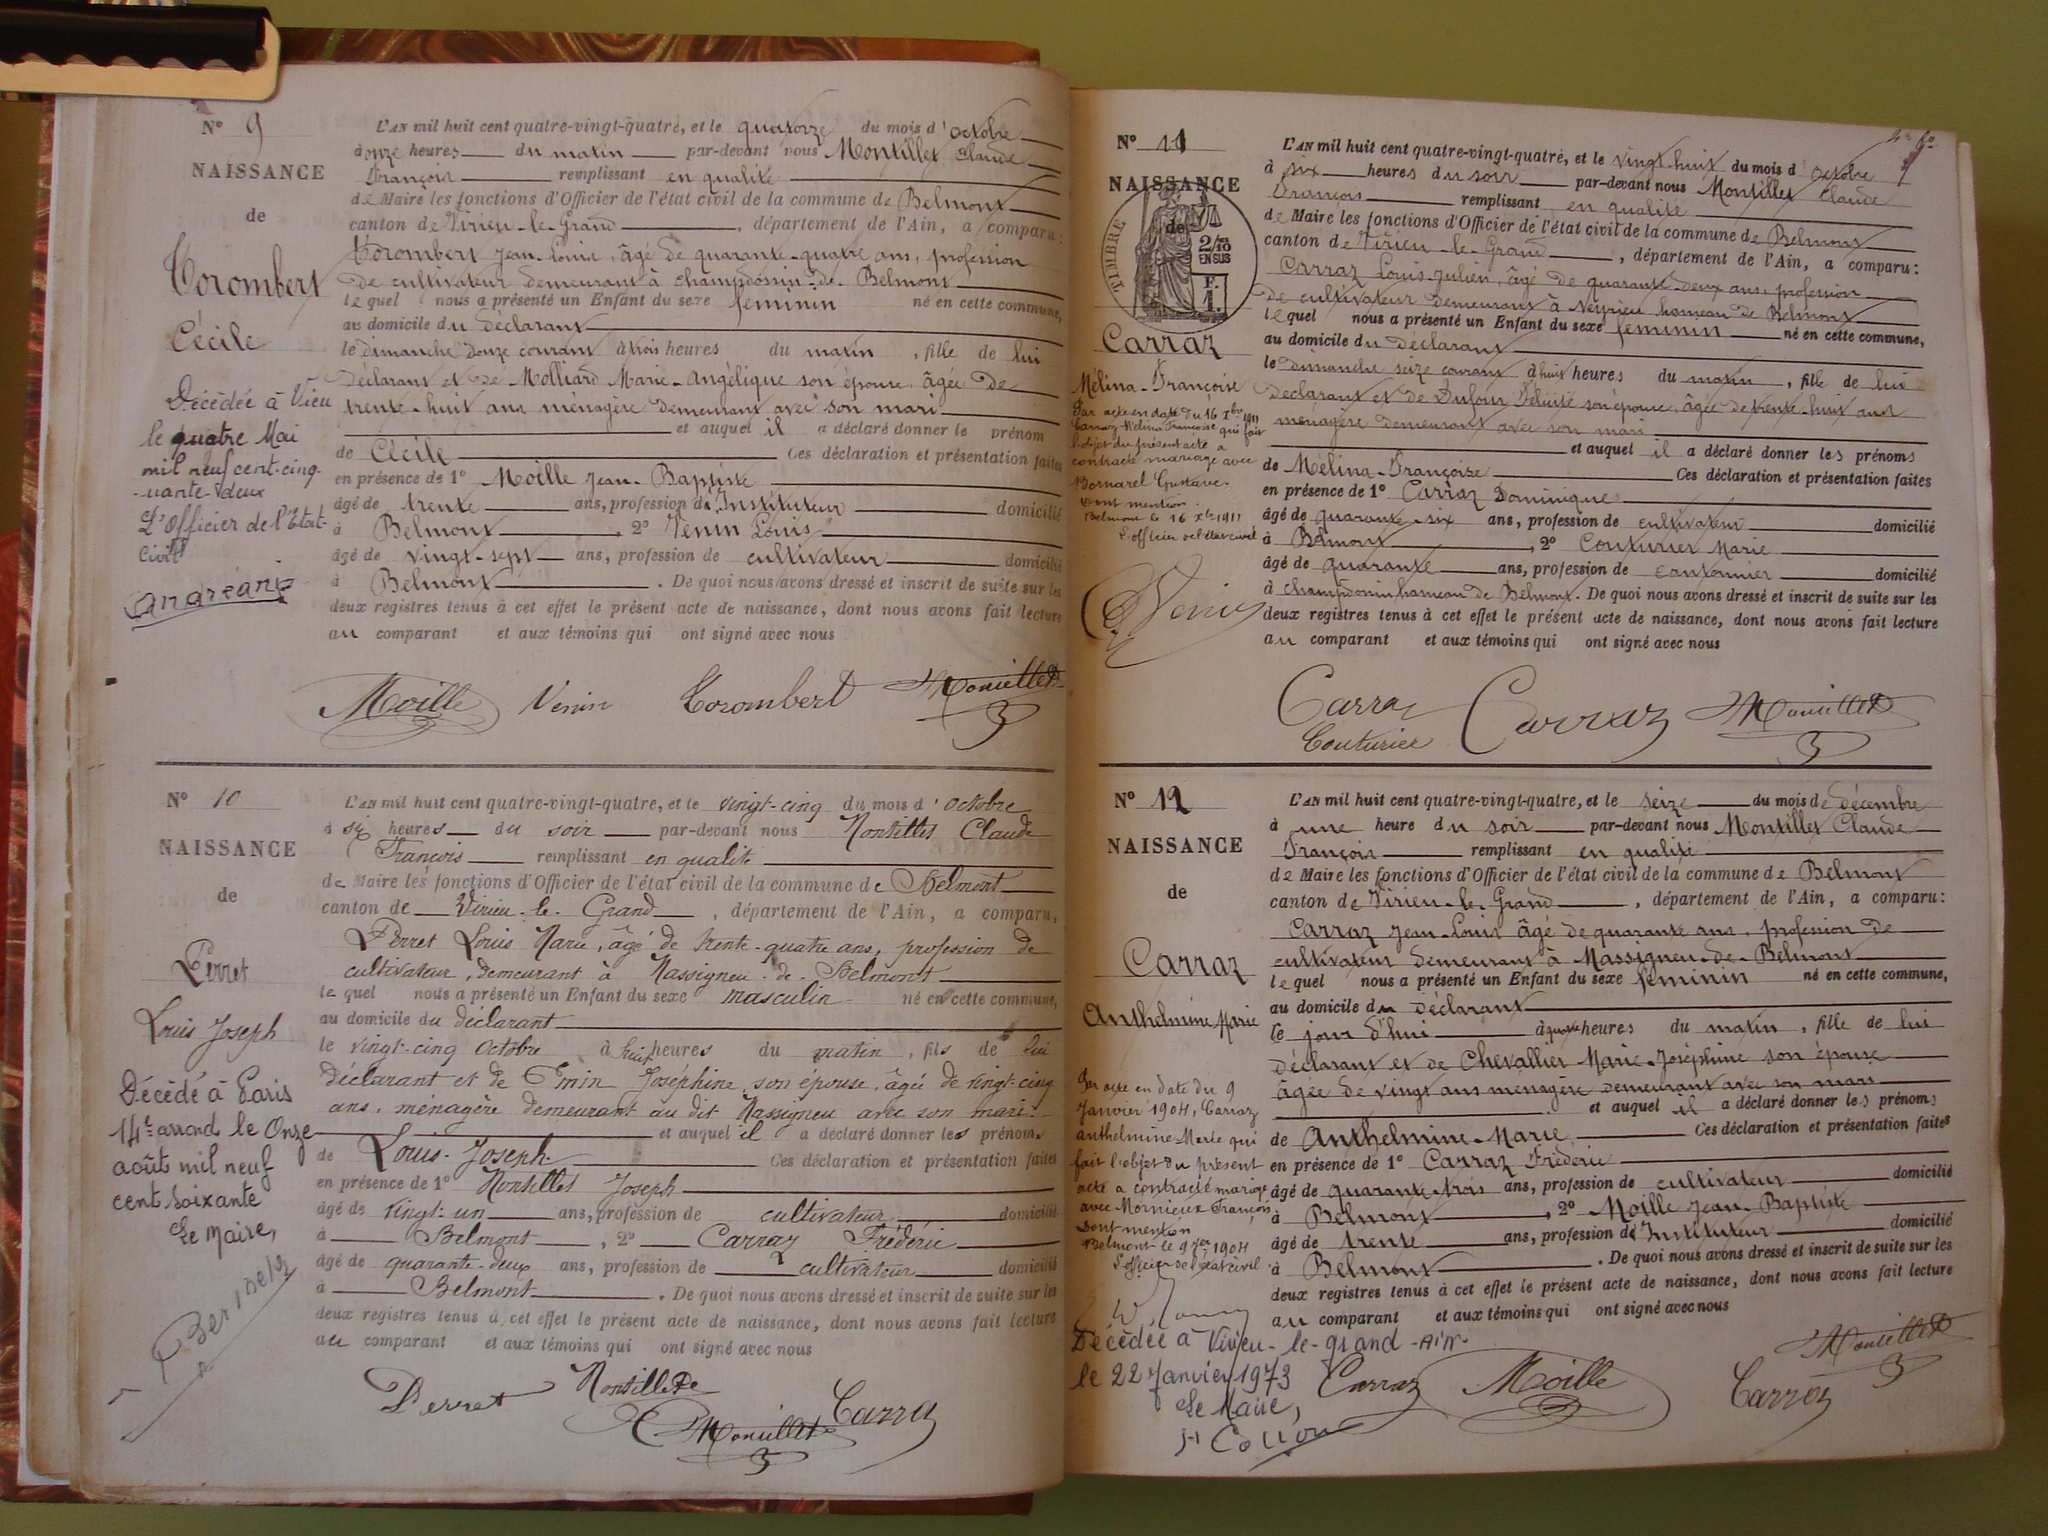 N° 9
NAISSANCE
de
Corombert
Cécile
Décédée à Vieu
le quatre Mai
mil neuf cent-cinq-
-uante-deux
L'Officier de l'Etat-
Civil
L'AN mil huit cent quatre-vingt-quatre, et le quatorze du mois d'octobre
à onze heures du matin par-devant nous Montillet Claude
François remplissant en qualité
de Maire les fonctions d'Officier de l'état civil de la commune de Belmont
canton de Virieu-le-Grand, département de l'Ain, a comparu:
Corombert Jean-Louis, âgé de quarante-quatre ans, profession
de cultivateur demeurant à Champdossin-de-Belmont
lequel nous a présenté un Enfant du sexe feminin né en cette commune,
au domicile du déclarant
le dimanche douze courant à trois heures du matin, fille de lui
déclarant et de Molliard Marie-Angélique son épouse, âgée de
trente-huit ans ménagère demeurant avec son mari
et auquel il a déclaré donner le prénom
de Cécile Ces déclaration et présentation faites
en présence de 1° Moille Jean-Baptiste
âgé de trente ans, profession d'Instituteur domicilié
à Belmont, 2° Venin Louis
âgé de vingt-sept ans, profession de cultivateur domicilié
à Belmont. De quoi nous avons dressé et inscrit de suite sur les
deux registres tenus à cet effet le présent acte de naissance, dont nous avons fait lecture
au comparant et aux témoins qui ont signé avec nous
Moille Venin Corombert Montillet
N° 10
NAISSANCE
de
Perret
Louis Joseph
Décédé à Paris
14e arrond le Onze
août mil neuf
cent soixante
Le Maire,
L'AN mil huit cent quatre-vingt-quatre, et le vingt-cinq du mois d'octobre
à six heures du soir par-devant nous Montillet Claude
François remplissant en qualité
de Maire les fonctions d'Officier de l'état civil de la commune de Belmont
canton de Virieu-le-Grand, département de l'Ain, a comparu,
Perret Louis Marie, âgé de trente-quatre ans, profession de
cultivateur, demeurant à Massigneu-de-Belmont
lequel nous a présenté un Enfant du sexe masculin né en cette commune,
au domicile du déclarant
le vingt-cinq Octobre à huit heures du matin, fils de lui
déclarant et de Emin Joséphine, son épouse, âgée de vingt-cinq
ans, ménagère demeurant au dit Massigneu avec son mari
et auquel il a déclaré donner les prénoms
de Louis-Joseph Ces déclaration et présentation faites
en présence de 1° Montillet Joseph
âgé de vingt-un ans, profession de cultivateur domicilié
à Belmont, 2° Carraz Fréderic
âgé de quarante-deux ans, profession de cultivateur domicilié
à Belmont. De quoi nous avons dressé et inscrit de suite sur les
deux registres tenus à cet effet le présent acte de naissance, dont nous avons fait lecture
au comparant et aux témoins qui ont signé avec nous
Perret Montillet Carraz
Montillet
N° 11
NAISSANCE
de
TIMBRE
2/10
EN SUS
F.
1.
Carraz
Mélina-Françoise
Par acte en date du 16 Xbre 1911
Carraz Mélina Françoise qui fait
l'objet du présent acte a
contracté mariage avec
Bornarel Gustave.
Dont mention
Belmont le 16 Xbre 1911
L'officier de l'état civil
L'AN mil huit cent quatre-vingt-quatre, et le vingt-huit du mois d'octobre
à six heures du soir par-devant nous Montillet Claude
François remplissant en qualité
de Maire les fonctions d'Officier de l'état civil de la commune de Belmont
canton de Virieu-le-Grand, département de l'Ain, a comparu:
Carraz Louis Julien, âgé de quarante-deux ans, profession
de cultivateur demeurant à Neyrieu hameau de Belmont
lequel nous a présenté un Enfant du sexe feminin né en cette commune,
au domicile du déclarant
le dimanche seize courant à huit heures du matin, fille de lui
déclarant et de Dufour Félicité son épouse, âgée de trente-huit ans
ménagère demeurant avec son mari
et auquel il a déclaré donner les prénoms
de Mélina-Françoise Ces déclaration et présentation faites
en présence de 1° Carraz Dominique
âgé de quarante-six ans, profession de cultivateur domicilié
à Belmont, 2° Couturier Marie
âgé de quarante ans, profession de cantonnier domicilié
à Champdossin hameau de Belmont. De quoi nous avons dressé et inscrit de suite sur les
deux registres tenus à cet effet le présent acte de naissance, dont nous avons fait lecture
au comparant et aux témoins qui ont signé avec nous
Carraz Carraz Montillet
Couturier
N° 12
NAISSANCE
de
Carraz
Anthelmine Marie
Par acte en date du 9
Janvier 1904, Carraz
Anthelmine Marie qui
fait l'objet du présent
acte a contracté mariage
avec Mornieux François
dont mention
Belmont le 9 1904
L'officier de l'état civil
Décédée à Virieu-le-grand-Ain
le 22 Janvier 1973
Le Maire,
L'AN mil huit cent quatre-vingt-quatre, et le seize du mois de décembre
à une heure du soir par-devant nous Montillet Claude
François remplissant en qualité
de Maire les fonctions d'Officier de l'état civil de la commune de Belmont
canton de Virieu-le-Grand, département de l'Ain, a comparu:
Carraz Jean-Louis âgé de quarante ans, profession de
cultivateur demeurant à Massigneu-de-Belmont
lequel nous a présenté un Enfant du sexe feminin né en cette commune,
au domicile du déclarant
le jour d'hui à quatre heures du matin, fille de lui
déclarant et de Chevallier Marie-Joséphine son épouse
âgée de vingt ans ménagère demeurant avec son mari
et auquel il a déclaré donner les prénoms
de Anthelmine-Marie, Ces déclaration et présentation faites
en présence de 1° Carraz Fréderic
âgé de quarante-trois ans, profession de cultivateur domicilié
à Belmont, 2° Moille Jean-Baptiste
âgé de trente ans, profession d'Instituteur domicilié
à Belmont. De quoi nous avons dressé et inscrit de suite sur les
deux registres tenus à cet effet le présent acte de naissance, dont nous avons fait lecture
au comparant et aux témoins qui ont signé avec nous
Montillet
Carraz Moille Carraz